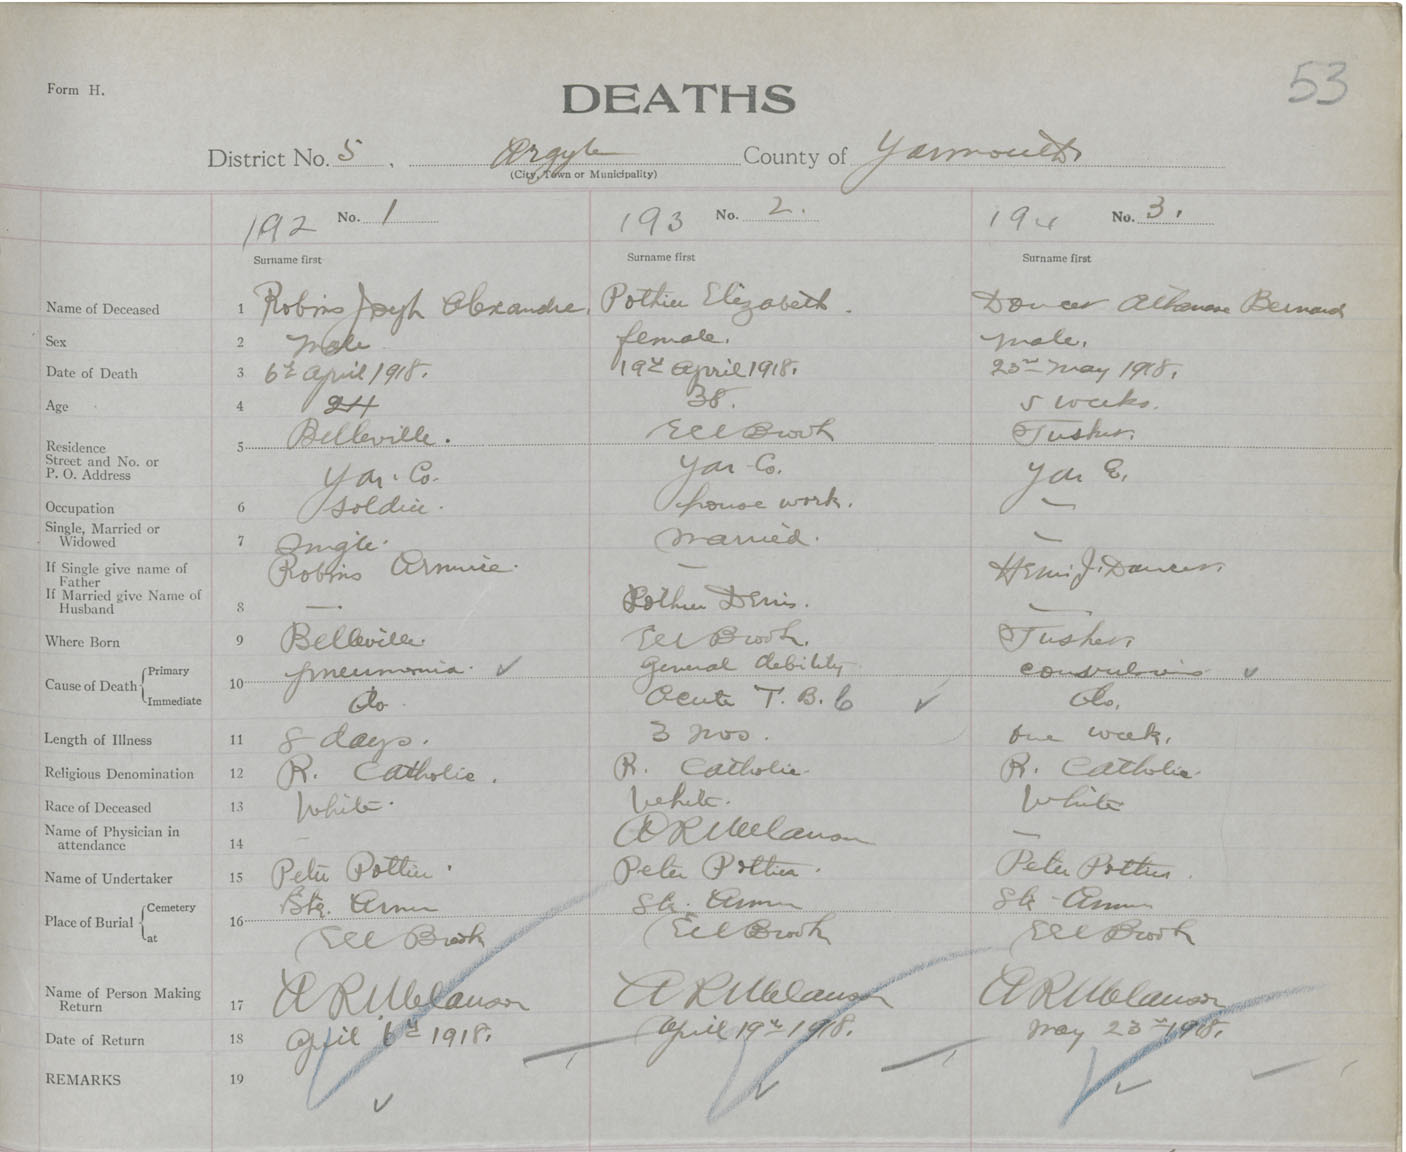 Form H.
53
DEATHS
District No. 5, Argyle County of Yarmouth
(City, Town or Municipality)
192 No. 1 193 No. 2. 194 No. 3.
Surname first Surname first Surname first
Name of Deceased 1 Robins Joseph Alexandre, Pothier Elizabeth. Doucet Athanase Bernard
Sex 2 male female. male.
Date of Death 3 6th April 1918. 19th April 1918. 23rd May 1918.
Age 4 24 38. 5 weeks.
Residence 5 Belleville. Eel Brook Tusket.
Street and No. or
P. O. Address Yar. Co. Yar Co. Yar Co.
Occupation 6 soldier. house work. —
Single, Married or
Widowed 7 single. married. —
If Single give name of
Father Robins — Henri J. Doucet.
If Married give Name of
Husband 8 — Pothier Denis. —
Where Born 9 Belleville. Eel Brook. Tusket.
Cause of Death Primary 10 pneumonia. ✓ General debility convulsions ✓
Immediate do Acute T. B. ✓ do.
Length of Illness 11 8 days. 3 mos. one week.
Religious Denomination 12 R. Catholic. R. Catholic. R. Catholic.
Race of Deceased 13 White. White. White
Name of Physician in
attendance 14 — A R Melanson —
Name of Undertaker 15 Peter Pottier. Peter Pottier. Peter Pottier.
Place of Burial Cemetery 16 Ste. Anne Ste. Anne Ste Anne
at Eel Brook Eel Brook Eel Brook
Name of Person Making
Return 17 A R Melanson A R Melanson A R Melanson
Date of Return 18 April 6th 1918. April 19th 1918. May 23rd 1918.
REMARKS 19 ✓ ✓ ✓